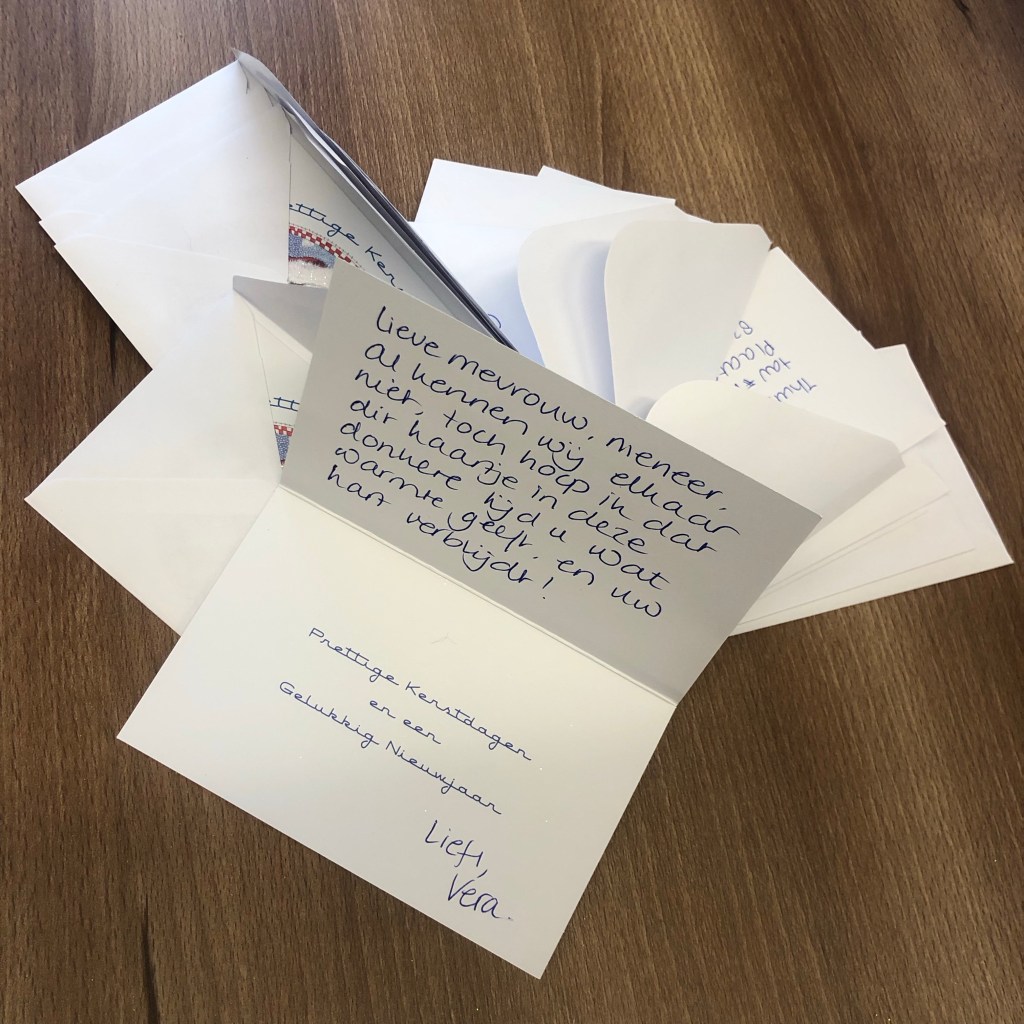 Lieve mevrouw, meneer,
Al kennen wij elkaar
niet, toch hoop ik dat
dit kaartje in deze
donkere tijd u wat
warmte geeft, en uw
hart verblijdt!
Prettige Kerstdagen
en een
Gelukkig Nieuwjaar
Liefs,
Vera.
ettige Ker
Plaat